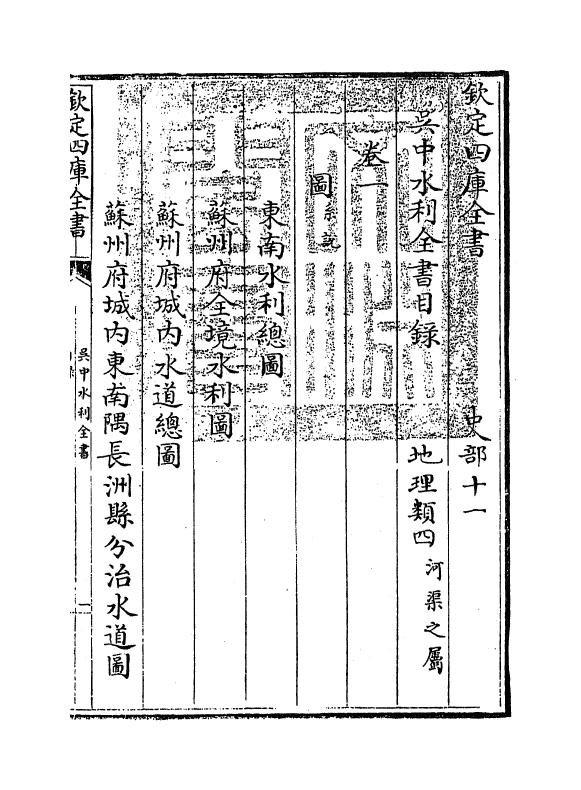 欽定四庫全書　史部十一
吳中水利全書目録　地理類四　河渠之屬
卷一
圖系說
東南水利總圖
蘇州府全境水利圖
蘇州府城内水道總圖
蘇州府城内東南隅長洲縣分治水道圖
欽定四庫全書　吳中水利全書　一